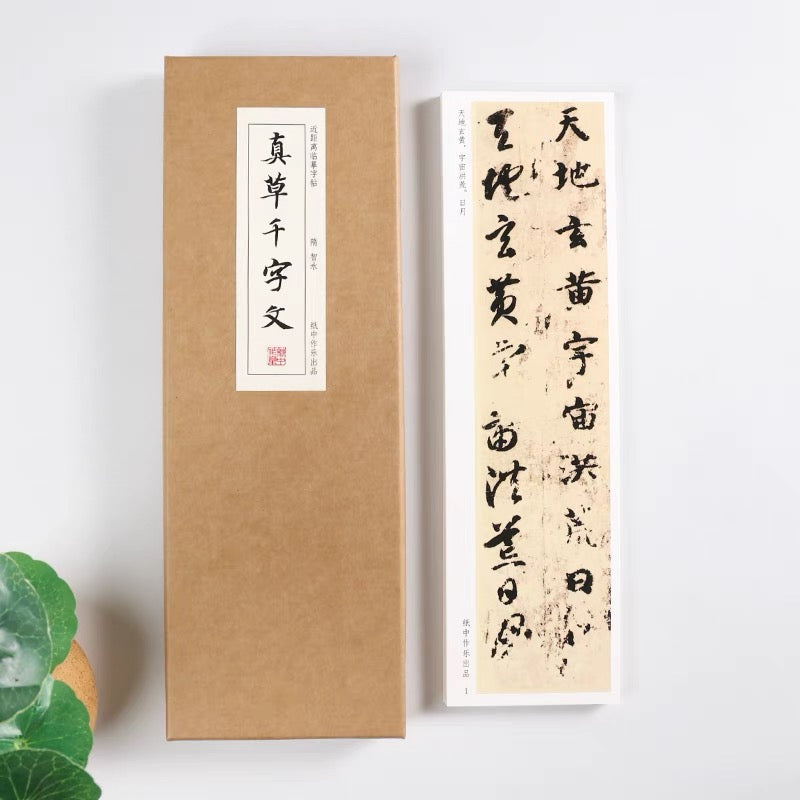 近距离临摹字帖 隋 智永 纸中作乐出品
真草千字文
天地玄黄宇宙洪荒日月
天地玄黄宇宙洪荒日月
天地玄黄，宇宙洪荒。日月
纸中作乐出品
1